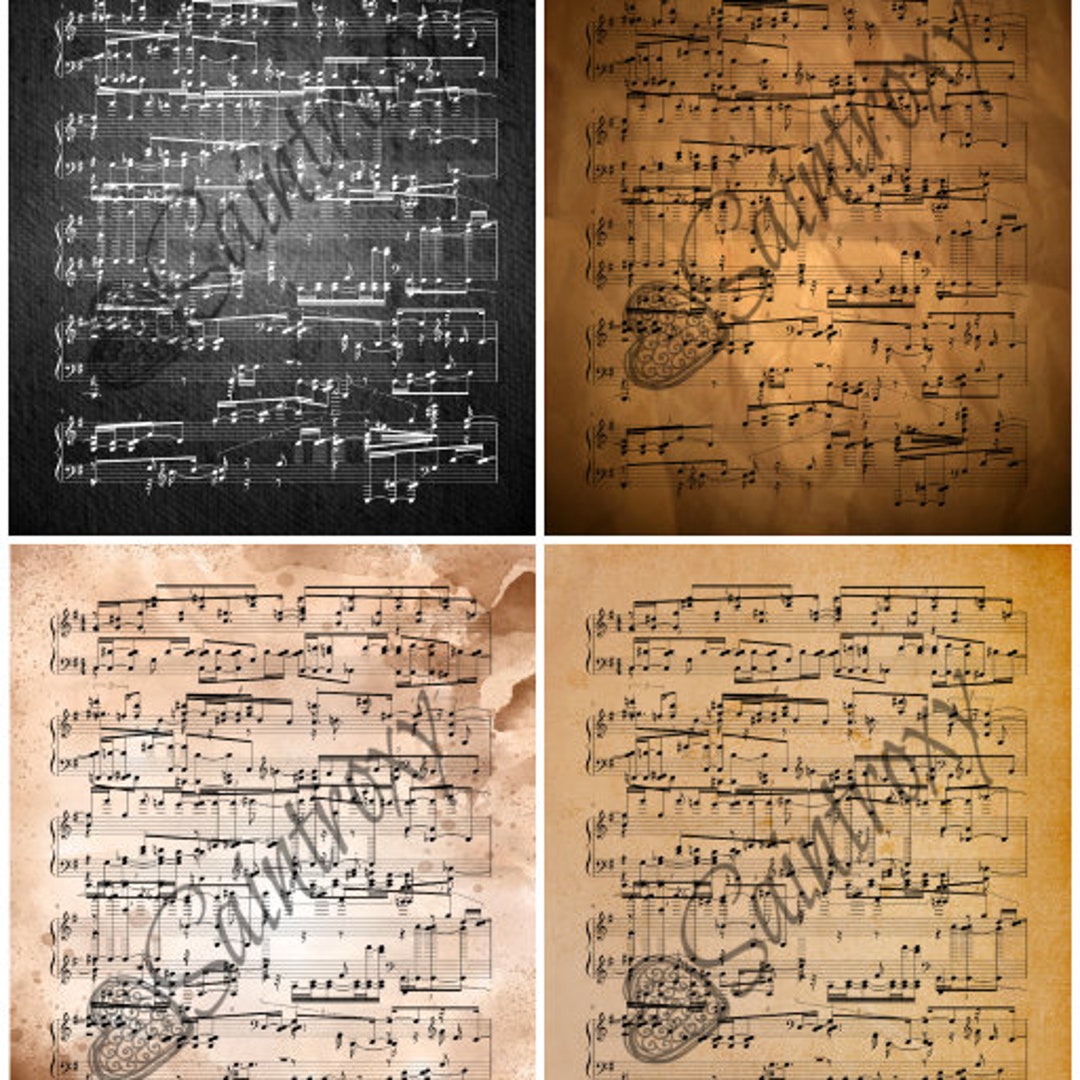 Saintroxy
Saintroxy
Saintroxy
Saintroxy